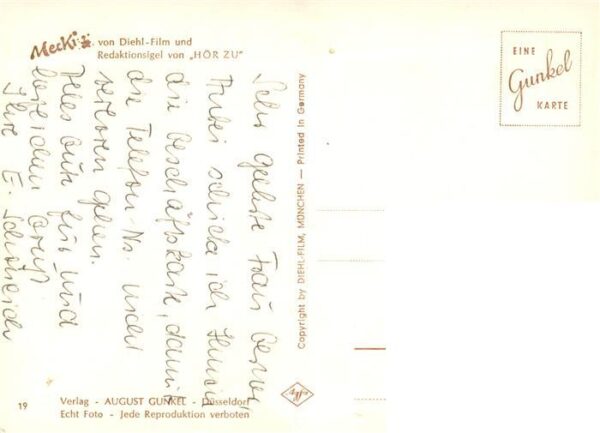 Mecki von Diehl-Film und
Redaktionsigel von „HÖR ZU"
EINE
Gunkel
KARTE
Sehr geehrte Frau
Anbei schicke ich Ihnen
die Geschäftskarte, damit
die Telefon-Nr. nicht
verloren gehen.
Alles Gute für und
Gruß
Ihre E.
Copyright by DIEHL-FILM, MÜNCHEN — Printed in Germany
Agfa
19
Verlag - AUGUST GUNKEL - Düsseldorf
Echt Foto - Jede Reproduktion verboten